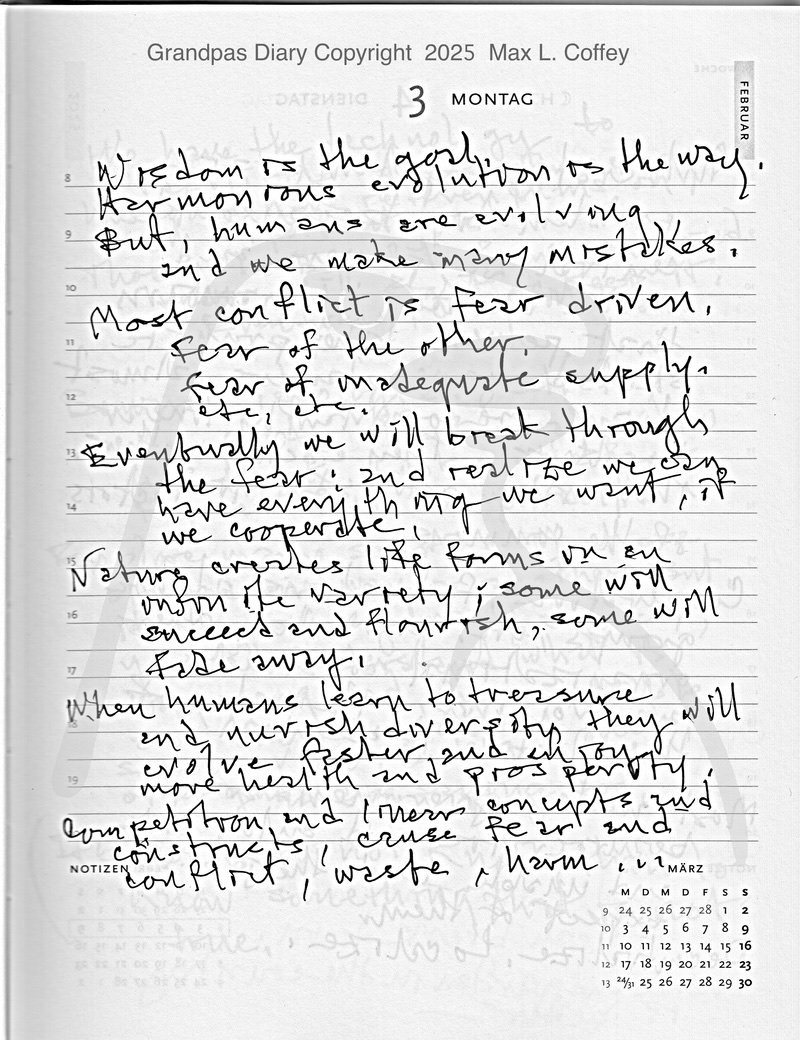 Grandpas Diary Copyright 2025 Max L. Coffey
3 MONTAG
FEBRUAR
8
Wisdom is the goal,
Harmonious evolution is the way.
9
But, humans are evolving
and we make many mistakes.
10
Most conflict is fear driven,
11
fear of the other,
fear of inadequate supply.
12
etc, etc.
Eventually we will break through
13
the fear; and realize we can
have everything we want, if
14
we cooperate,
15
Nature creates life forms in an
infinite variety; some will
16
succeed and flourish, some will
17
fade away.
When humans learn to treasure
18
and nurrish diversity they will
evolve faster and enjoy
19
more health and prosperity.
Competition and linear concepts and
constructs, cause fear and
NOTIZEN
conflict, waste, harm ...
MÄRZ
M D M D F S S
9 24 25 26 27 28 1 2
10 3 4 5 6 7 8 9
11 10 11 12 13 14 15 16
12 17 18 19 20 21 22 23
13 24/31 25 26 27 28 29 30